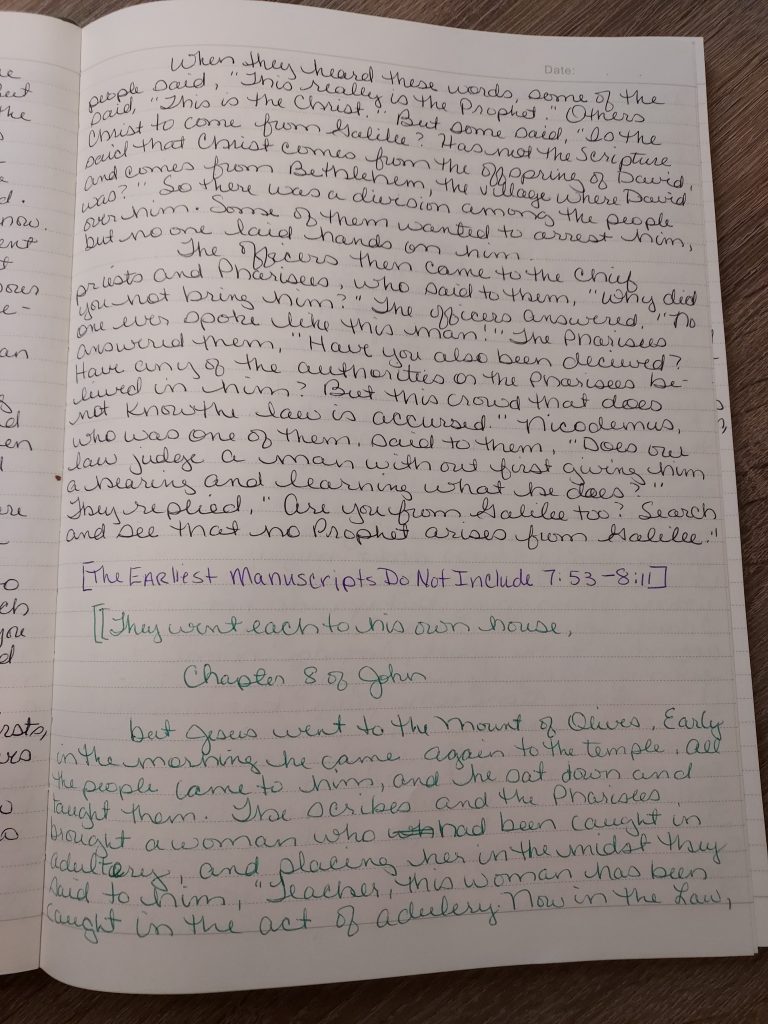 Date:
When they heard these words, some of the
people said, "This really is the Prophet." Others
said, "This is the Christ." But some said, "Is the
Christ to come from Galilee? Has not the Scripture
said that Christ comes from the offspring of David,
and comes from Bethlehem, the village where David
was?" So there was a division among the people
over him. Some of them wanted to arrest him,
but no one laid hands on him.
The officers then came to the chief
priests and Pharisees, who said to them, "Why did
you not bring him?" The officers answered, "No
one ever spoke like this man!" The Pharisees
answered them, "Have you also been decived?
Have any of the authorities or the Pharisees be-
lieved in him? But this crowd that does
not know the law is accursed." Nicodemus,
who was one of them, said to them, "Does our
law judge a man with out first giving him
a hearing and learning what he does?"
They replied, "Are you from Galilee too? Search
and see that no Prophet arises from Galilee."
[The Earliest Manuscripts Do Not Include 7:53-8:11]
[[They went each to his own house,
Chapter 8 of John
but Jesus went to the Mount of Olives. Early
in the morning he came again to the temple, all
the people came to him, and he sat down and
taught them. The scribes and the Pharisees
brought a woman who had been caught in
adultery, and placing her in the midst they
said to him, "Teacher, this woman has been
caught in the act of adulery. Now in the Law,